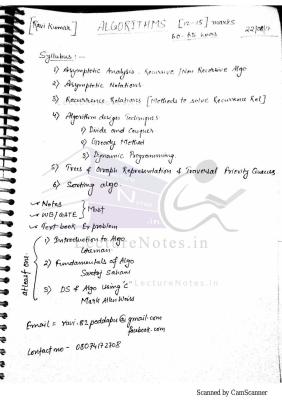 [Ravi Kumar] ALGORITHMS [12-15] marks
60-65 hours 22/08/17
Syllabus:-
1) Asymptotic Analysis. Recursive / Non Recursive Algo
2) Asymptotic Notations
3) Recurrence Relations [Methods to solve Recurrence Rel]
4) Algorithm design Techniques
1) Divide and Conquer
2) Greedy Method
3) Dynamic Programming.
5) Trees & Graph Representation & Traversal Priority Queues
6) Sorting algo.
Notes
WB/GATE } Must
Text book Ex problem
atleast one
1) Introduction to Algo
Coreman
2) Fundamentals of Algo
Sartaj Sahani
3) DS & Algo Using "C"
Mark Allen Weiss
LectureNotes.in
LectureNotes.in
Email = ravi.82.peddapu@gmail.com
facebook.com
Contact no - 08074172708
Scanned by CamScanner